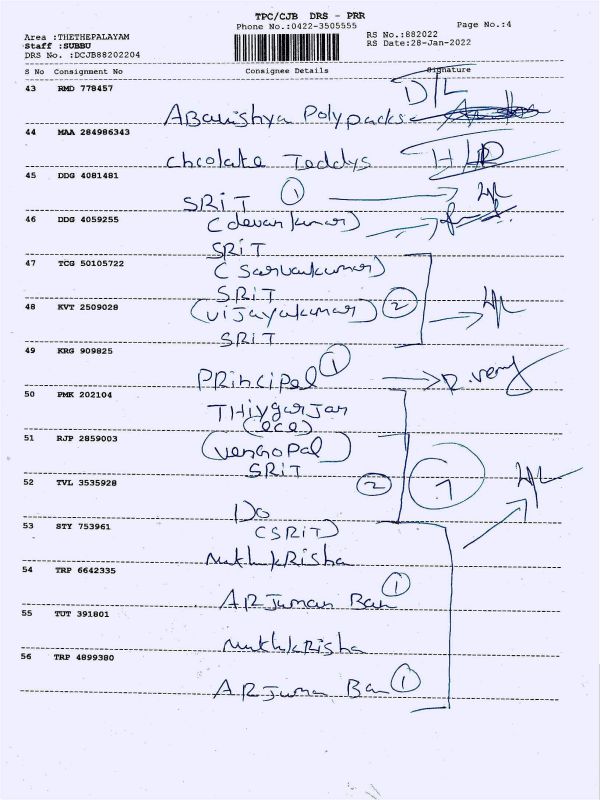 TPC/CJB DRS - PRR
Phone No.:0422-3505555
Page No.:4
Area :THETHEPALAYAM
Staff :SUBBU
DRS No. :DCJB88202204
RS No.:882022
RS Date:28-Jan-2022
S No Consignment No Consignee Details Signature
43 RMD 778457
D/L
Polypacks
44 MAA 284986343
Chcolate Teddys
45 DDG 4081481
SRiT 1
(devankumar)
46 DDG 4059255
SRiT
47 TCG 50105722
(Sarvankumar)
SRiT
48 KVT 2509028
(Vijayakumar) 2
SRiT
49 KRG 909825
Principal 1
50 PMK 202104
THiygarJan
(ece)
51 RJP 2859003
(Vengopal)
SRiT
52 TVL 3535928
2
7
Do
53 STY 753961
(SRiT)
MuthkRisha
54 TRP 6642335
ARJuman Ban 1
55 TUT 391801
MuthkRisha
56 TRP 4899380
ARJuman Ban 1